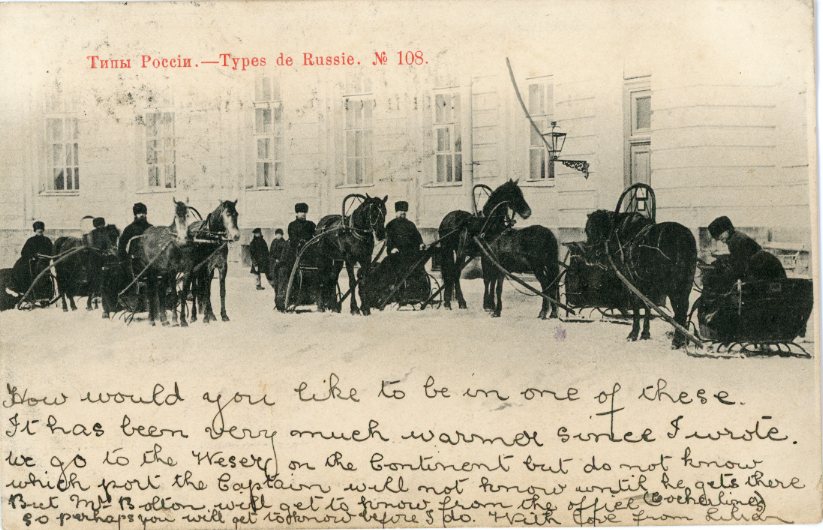 Типы Россіи.—Types de Russie. № 108.
How would you like to be in one of these.
It has been very much warmer since I wrote.
We go to the Weser on the Continent but do not know
which port the Captain will not know until he gets there
But Mr Bolton will get to know from the office (Cockerline)
so perhaps you will get to know before I do. With love from